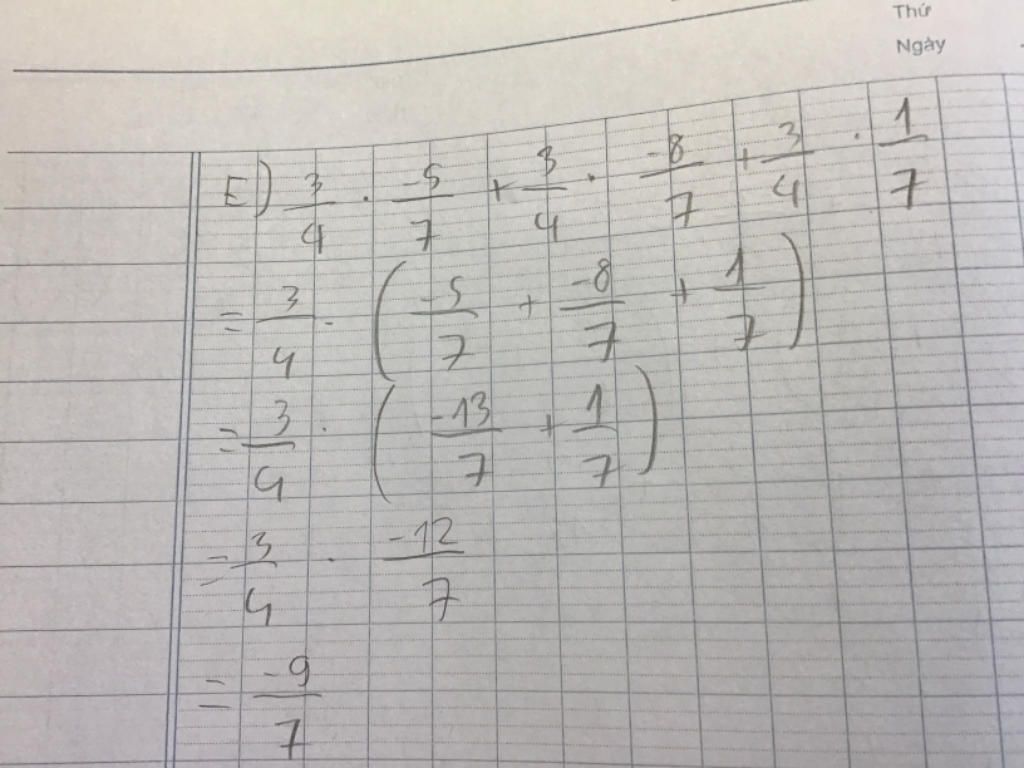 Thứ
Ngày
E) 3/4 . -5/7 + 3/4 . -8/7 + 3/4 . 1/7
= 3/4 . (-5/7 + -8/7 + 1/7)
= 3/4 . (-13/7 + 1/7)
= 3/4 . -12/7
= -9/7